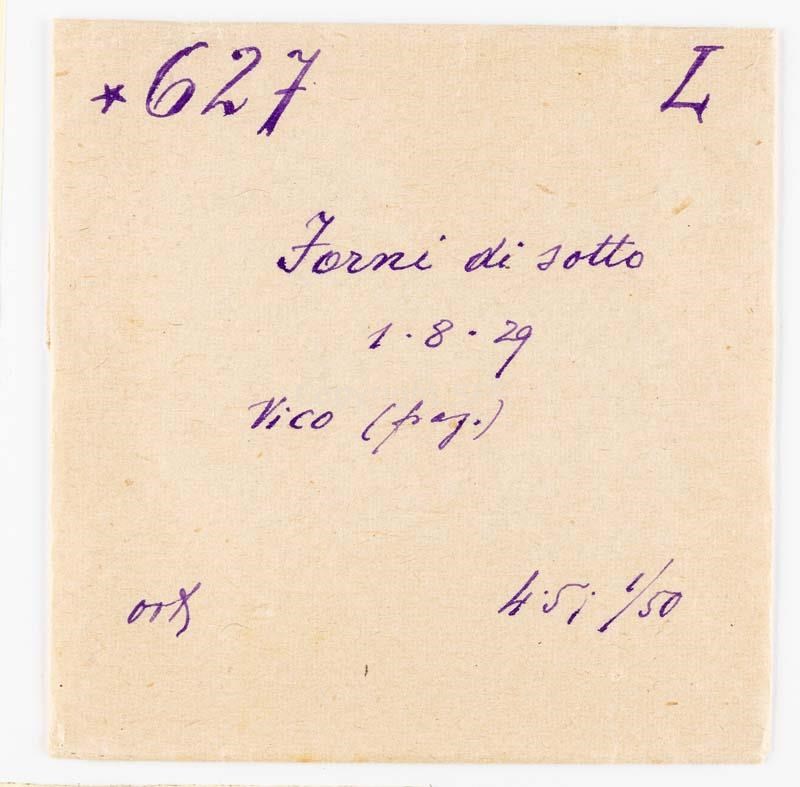 *627 L
Forni di sotto
1.8.29
Vico (fraz.)
orth
4.5; 1/50